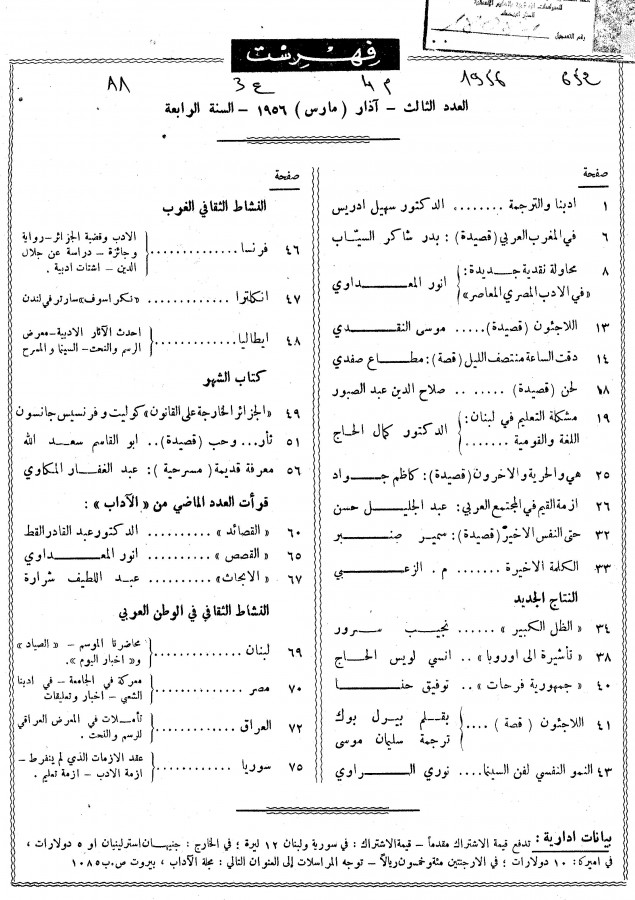 رقم التسجيل
فهرست
٦٤٥ ١٩٥٦ م ٤ ع ٣ ٨٨
العدد الثالث - آذار ( مارس ) ١٩٥٦ - السنة الرابعة
صفحة
١ ادبنا والترجمة ........ الدكتور سهيل ادريس
٦ في المغرب العربي (قصيدة) : بدر شاكر السيّاب
٨ محاولة نقدية جـديـدة:
«في الادب المصري المعاصر» } انور المعــداوي
١٣ اللاجئون (قصيدة)..... موسى النقــدي
١٤ دقت الساعة منتصف الليل (قصة): مطـاع صفدي
١٨ لحن (قصيدة) ..... .. صلاح الدين عبد الصبور
١٩ مشكلة التعليم في لبنان:
اللغة والقومية ....... } الدكتور كمال الحاج
٢٥ هي والحرية والاخرون (قصيدة): كاظم جـواد
٢٦ ازمة القيم في المجتمع العربي: عبد الجليــل حسن
٣٢ حتى النفس الاخير (قصيدة): سميـر صنبـر
٣٣ الكلمة الاخيرة ....... م . الزعـبي
النتاج الجديد
٣٤ « الظل الكبير » ...... نجيـب سـرور
٣٨ « تأشيرة الى اوروبا » .. انسي لويس الحاج
٤٠ « جمهورية فرحات » .. توفيق حنـا
٤١ اللاجئون ( قصة ) .... { بقــلم بيـرل بوك
ترجمة سليمان موسى
٤٣ النمو النفسي لفن السينما.... نوري الــراوي
صفحة
النشاط الثقافي في الغرب
٤٦ فرنسا .............. { الادب وقضية الجزائر-رواية
وجائزة - دراسة عن جلال
الدين - اشتات ادبية .
٤٧ انكلترا ............. «نكراسوف» سارتر في لندن
٤٨ ايطاليا .............. { احدث الآثار الادبية-معرض
الرسم والنحت-السينما والمسرح
كتاب الشهر
٤٩ «الجزائر الخارجة على القانون» كوليت وفرنسيس جانسون
٥١ ثأر... وحب (قصيدة).. ابو القاسم سعـد الله
٥٦ معرفة قديمة ( مسرحية ): عبد الغفــار المكاوي
قرأت العدد الماضي من «الآداب» :
٦٠ « القصائد » .......... الدكتور عبد القادر القط
٦٥ « القصص » .......... انور المعــداوي
٦٧ « الابحاث» .......... عبـد اللطيف شرارة
النشاط الثقافي في الوطن العربي
٦٩ لبنان .............. { محاضرتا الموسم - « الصياد »
و« اخبار اليوم ».
٧٠ مصر .............. { معركة في الجامعة - في ادبنا
الشعبي - اخبار وتعليقات
٧٢ العراق ............ { تأمـلات في المعرض العراقي
للرسم والنحت .
٧٥ سوريا ............. { عقد الازمات الذي لم ينفرط -
ازمة الادب - ازمة تعليم .
بيانات ادارية : تدفع قيمة الاشتراك مقدماً - قيمة الاشتراك: في سورية ولبنان ١٢ ليرة ؛ في الخارج : جنيهان استرلينيان او ٥ دولارات ،
في اميركا: ١٠ دولارات ؛ في الارجنتين مئة وخمسون ريالاً - توجه المراسلات إلى العنوان التالي : مجلة الآداب ، بيروت ص.ب ١٠٨٥